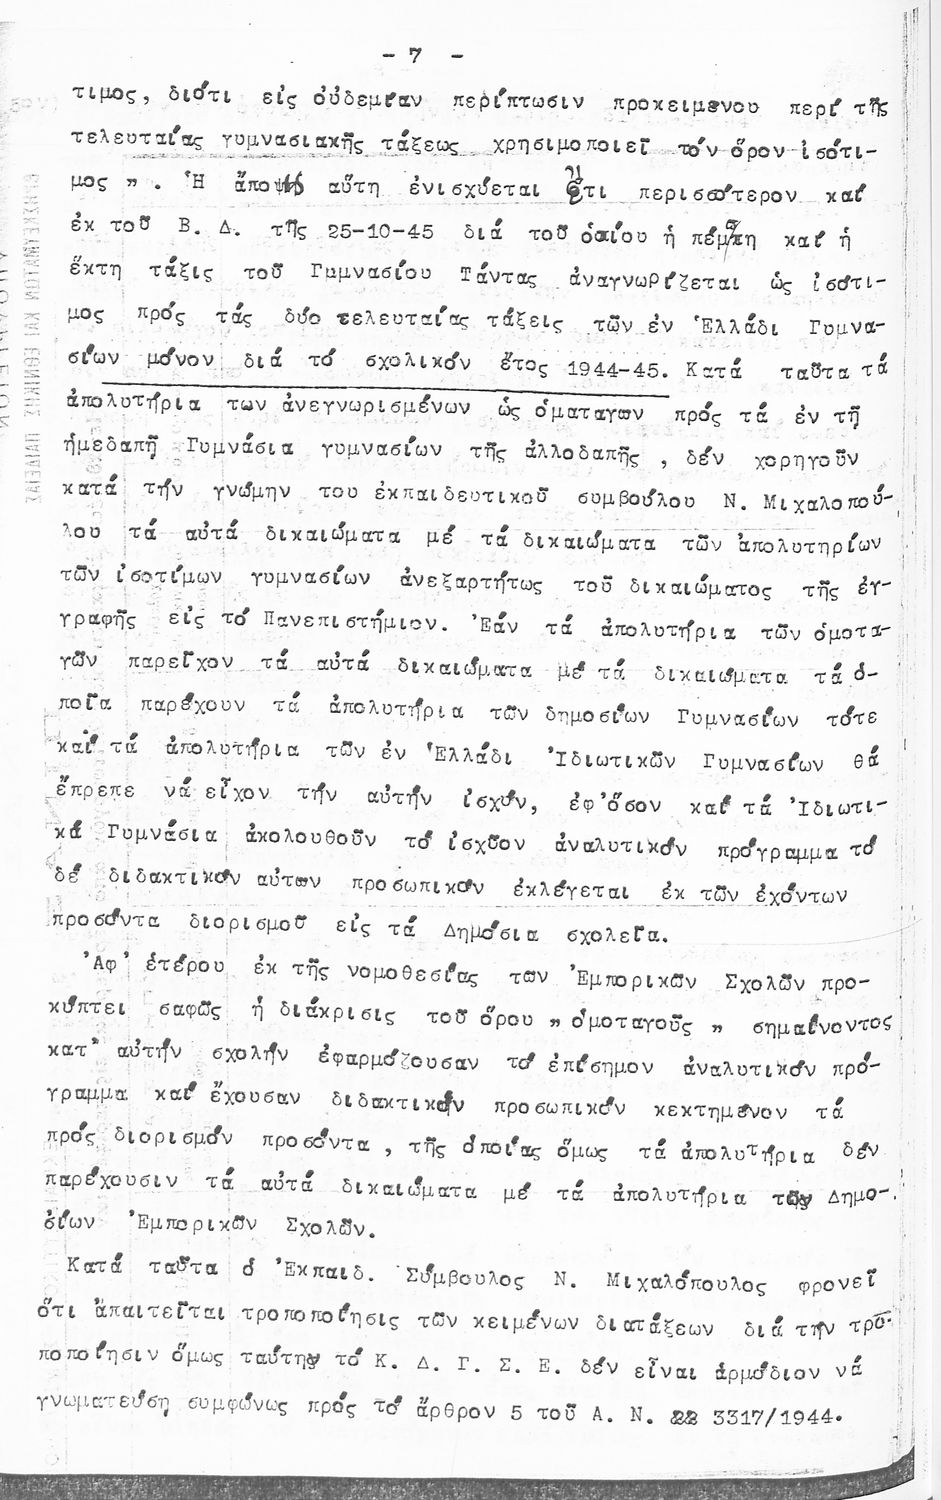 - 7 -
τιμος, διότι εἰς οὐδεμίαν περίπτωσιν προκειμένου περί τῆς
τελευταίας γυμνασιακῆς τάξεως χρησιμοποιεῖ τόν ὅρον ἰσότι-
μος ". Ἡ ἄποψις αὕτη ἐνισχύεται ἔτι περισσότερον καί
ἐκ τοῦ Β. Δ. τῆς 25-10-45 διά τοῦ ὁποίου ἡ πέμπτη καί ἡ
ἕκτη τάξις τοῦ Γυμνασίου Τάντας ἀναγνωρίζεται ὡς ἰσότι-
μος πρός τάς δύο τελευταίας τάξεις τῶν ἐν Ἑλλάδι Γυμνα-
σίων μόνον διά τό σχολικόν ἔτος 1944-45. Κατά ταῦτα τά
ἀπολυτήρια των ἀνεγνωρισμένων ὡς ὁμοταγων πρός τά ἐν τῇ
ἡμεδαπῇ Γυμνάσια γυμνασίων τῆς ἀλλοδαπῆς , δέν χορηγοῦν
κατά τήν γνώμην του ἐκπαιδευτικοῦ συμβούλου Ν. Μιχαλοπού-
λου τά αὐτά δικαιώματα μέ τά δικαιώματα τῶν ἀπολυτηρίων
τῶν ἰσοτίμων γυμνασίων ἀνεξαρτήτως τοῦ δικαιώματος τῆς ἐγ-
γραφῆς εἰς τό Πανεπιστήμιον. Ἐάν τά ἀπολυτήρια τῶν ὁμοτα-
γῶν παρεῖχον τά αὐτά δικαιώματα μέ τά δικαιώματα τά ὁ-
ποῖα παρέχουν τά ἀπολυτήρια τῶν δημοσίων Γυμνασίων τότε
καί τά ἀπολυτήρια τῶν ἐν Ἑλλάδι Ἰδιωτικῶν Γυμνασίων θά
ἔπρεπε νά εἶχον τήν αὐτήν ἰσχύν, ἐφ'ὅσον καί τά Ἰδιωτι-
κά Γυμνάσια ἀκολουθοῦν τό ἰσχῦον ἀναλυτικόν πρόγραμμα τό
δέ διδακτικόν αὐτων προσωπικόν ἐκλέγεται ἐκ τῶν ἐχόντων
προσόντα διορισμοῦ εἰς τά Δημόσια σχολεῖα.
Ἀφ' ἑτέρου ἐκ τῆς νομοθεσίας των Ἐμπορικῶν Σχολῶν προ-
κύπτει σαφῶς ἡ διάκρισις τοῦ ὅρου " ὁμοταγοῦς " σημαίνοντος
κατ' αὐτήν σχολήν ἐφαρμόζουσαν τό ἐπίσημον ἀναλυτικόν πρό-
γραμμα καί ἔχουσαν διδακτικόν προσωπικόν κεκτημένον τά
πρός διορισμόν προσόντα , τῆς ὁποίας ὅμως τά ἀπολυτήρια δέν
παρέχουσιν τά αὐτά δικαιώματα μέ τά ἀπολυτήρια τῶν Δημο-
σίων Ἐμπορικῶν Σχολῶν.
Κατά ταῦτα ὁ Ἐκπαιδ. Σύμβουλος Ν. Μιχαλόπουλος φρονεῖ
ὅτι ἀπαιτεῖται τροποποίησις τῶν κειμένων διατάξεων διά τήν τρο-
ποποίησιν ὅμως ταύτην τό Κ. Δ. Γ. Σ. Ε. δέν εἶναι ἁρμόδιον νά
γνωματεύσῃ συμφώνως πρός τό ἄρθρον 5 τοῦ Α. Ν. 3317/1944.